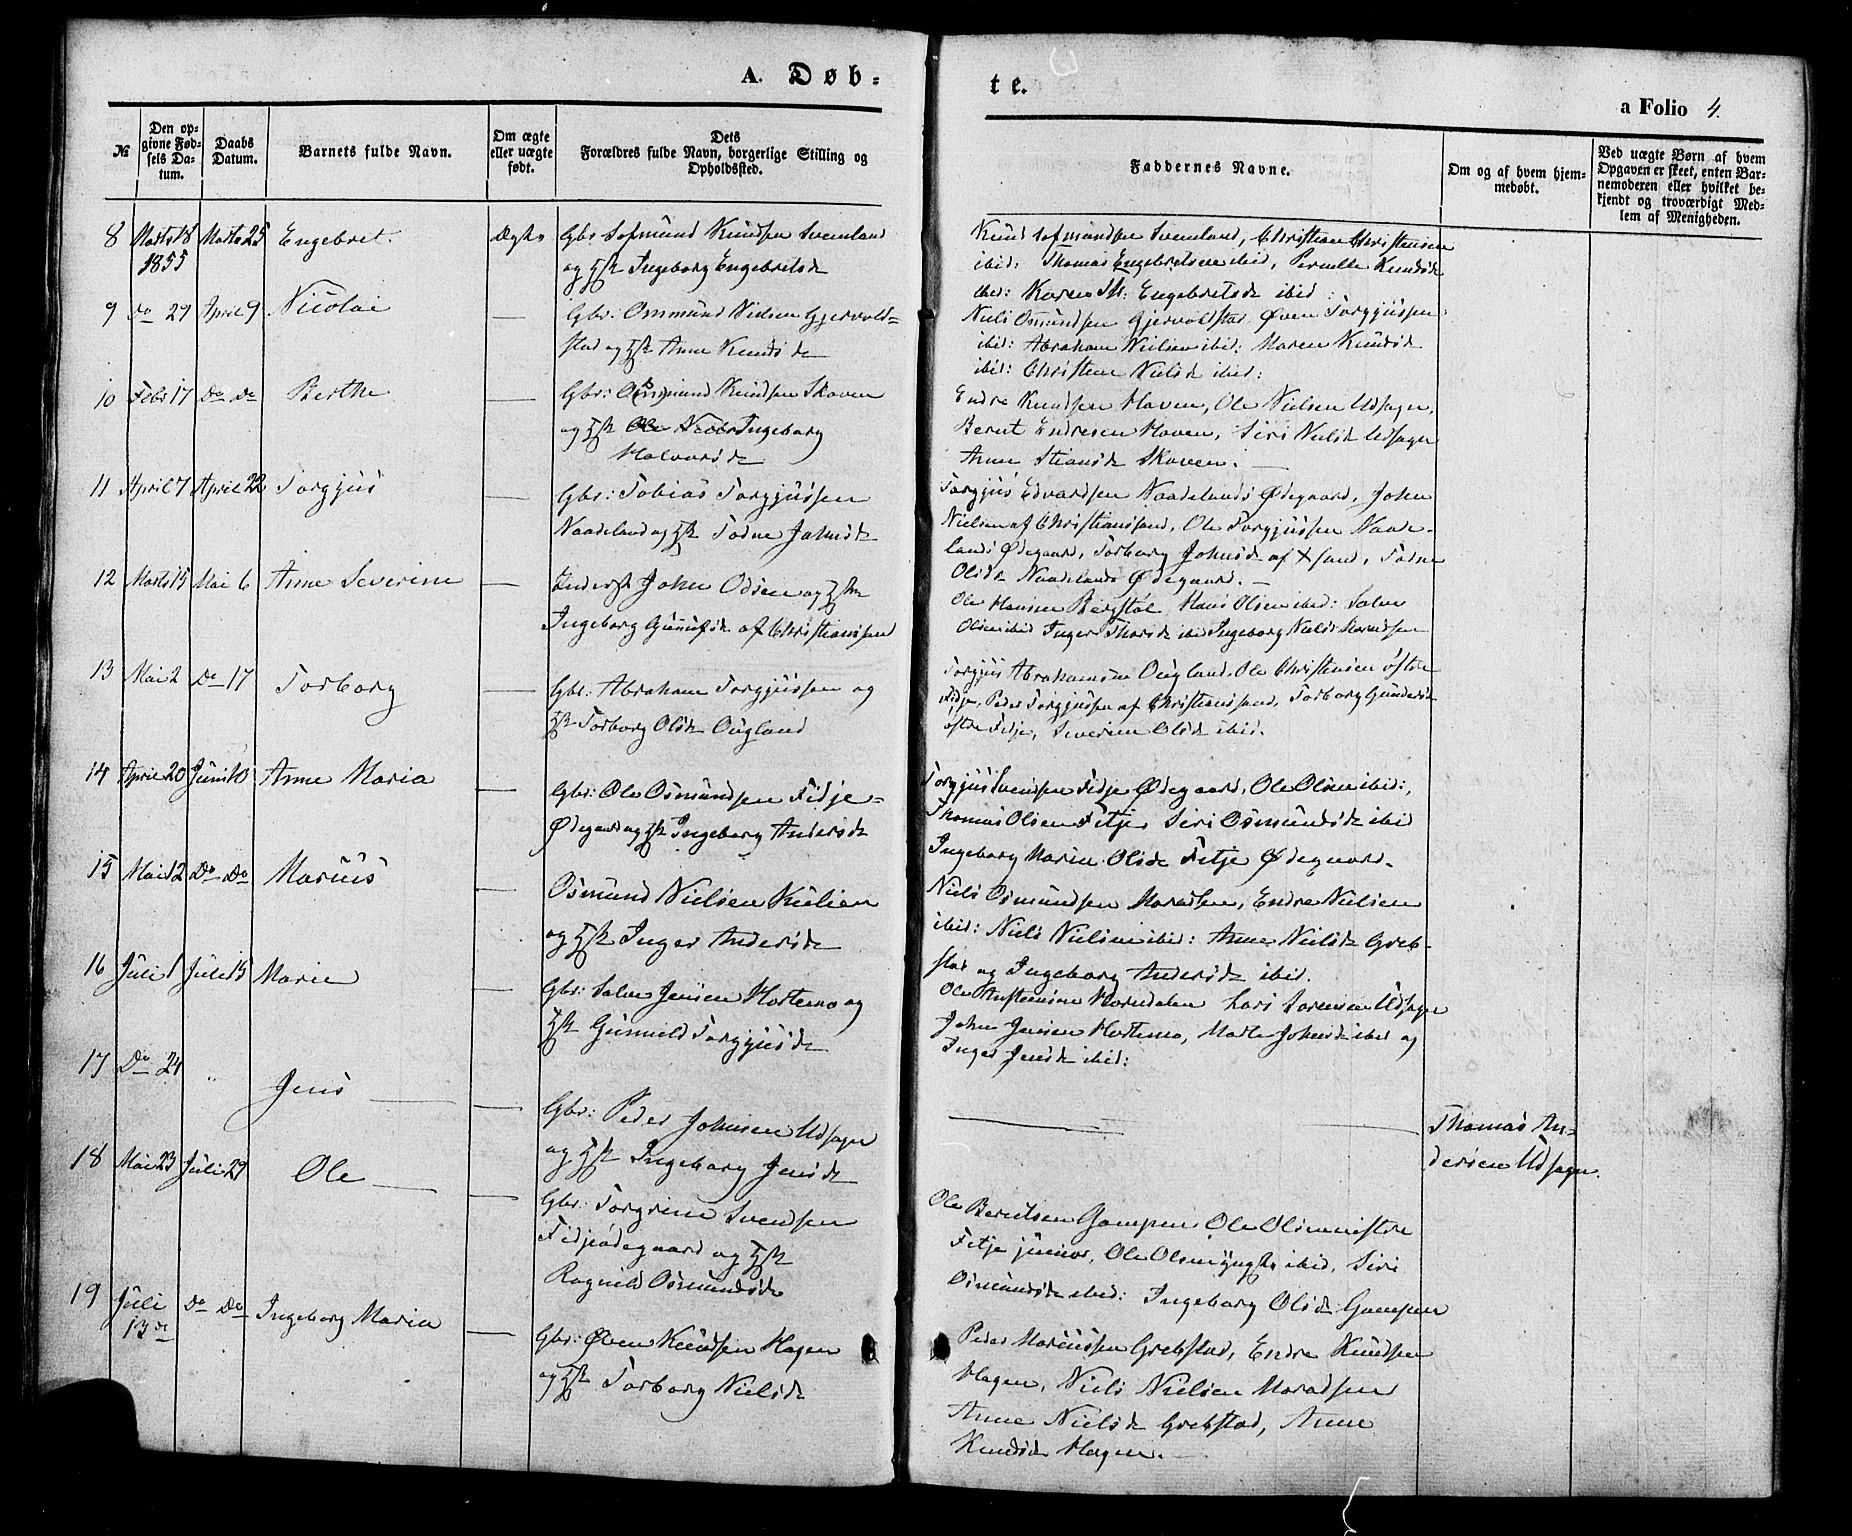 A. Døb-
te.
a Folio 4.
№
Den op-
givne Fød-
sels Da-
tum.
Daabs
Datum.
Barnets fulde Navn.
Om ægte
eller uægte
født.
Dets
Forældres fulde Navn, borgerlige Stilling og
Opholdssted.
Faddernes Navne.
Om og af hvem hjem-
medøbt.
Ved uægte Børn af hvem
Opgaven er skeet, enten Bar-
nemoderen eller hvilket be-
kjendt og troværdigt Med-
lem af Menigheden.
8 Marts 18 Marts 25 Engebret. Ægte Gbr Sofmund Knudsen Svenland
1855 og Hst Ingeborg Engebretsd
Knud Sofmundsen Svenland, Christian Christensen
ibid: Thomas Engebretsen ibid, Pernelle Knudsd
ibid: Karen M: Engebretsd ibid:
9 Do 29 April 9 Nicolai — Gbr: Ommund Nielsen Gjervold-
stad og Hst Anne Knudsd
Niels Osmundsen Gjervoldstad Øven Torgjussen
ibid: Abraham Nielsen ibid: Maren Knudsd
ibid: Christene Nielsd ibid:
10 Febr 17 Do Do Berthe — Gbr: Osmund Knudsen Skoven
og Hst Ingeborg
Halvorsd
Endre Knudsen Hoven, Ole Nielsen Udsagn,
Berut Endresen Hoven, Siri Nielsd Udsagn
Anne Stiansd Skoven. —
11 April 7 April 22 Torgjus — Gbr: Tobias Torgjussen
Naadeland og Hst Todne Johnsd
Torgjus Edvardsen Naadelands Ødegaard, John
Nielsen af Christianssand, Ole Torgjussen Naade-
lands Ødegaard, Torborg Johnsd af Xsand, Todne
Olsd Naadelands Ødegaard. —
12 Marts 15 Mai 6 Anne Severine — John Odsen og Hst
Ingeborg Gunufsd af Christianssand
Ole Hansen Bergstøl Hans Olsen ibid: Salve
Olsen ibid Inger Thorsd ibid Ingeborg Nielsd
13 Mai 2 Do 17 Torborg — Gbr: Abraham Torgjussen og
Hst Torborg Olsd Ougland
Torgjus Abrahamsen Ougland, Ole Christensen østre
Fidje, Peder Torgjussen af Christianssand, Torborg Gundersd
østre Fidje, Severine Olsd ibid.
14 April 20 Juni 10 Anne Maria — Gbr: Ole Osmundsen Fidje-
Ødegaard og Hst Ingeborg Andersd
Torgjus Svendsen Fidje Ødegaard, Ole Olsen ibid:,
Thomas Olsen Fitje Siri Osmundsd ibid
Ingeborg Marie Olsd Fitje Ødegaard.
15 Mai 12 Do Do Marius — Osmund Nielsen Kulien
og Hst Inger Andersd
Niels Osmundsen Moradsen, Endre Nielsen
ibid: Niels Nielsen ibid: Anne Nielsd Greb-
stad og Ingeborg Andersd ibid.
16 Juli 1 Juli 15 Marie — Gbr: Salve Jensen Hortemo og
Hst Gunnild Torgjusd
Ole Austensen Lars Larensen Udsagn
John Jensen Hortemo, Marte Johnsd ibid og
Inger Jensd ibid:
17 Do 24 " Jens — — Gbr: Peder Johnsen Udsagn
og Hst Ingeborg Jensd
— —
Thomas An-
dersen Udsagn.
18 Mai 23 Juli 29 Ole — — Gbr: Torgrim Svendsen
Fidjeødegaard og Hst
Ragnild Osmundsd
Ole Berutsen Gampen, Ole Olsen østre
Fitje junior, Ole Olsen yngste ibid, Siri
Osmundsd ibid: Ingeborg Olsd Gampen
19 Juli Do Do Ingeborg Maria — Gbr: Øven Knudsen Hagen
13de og Hst Torborg Nielsd
Peder Marcussen Grebstad, Endre Knudsen
Hagen, Niels Nielsen Moradsen
Anne Nielsd Grebstad, Anne
Knudsd Hagen. —